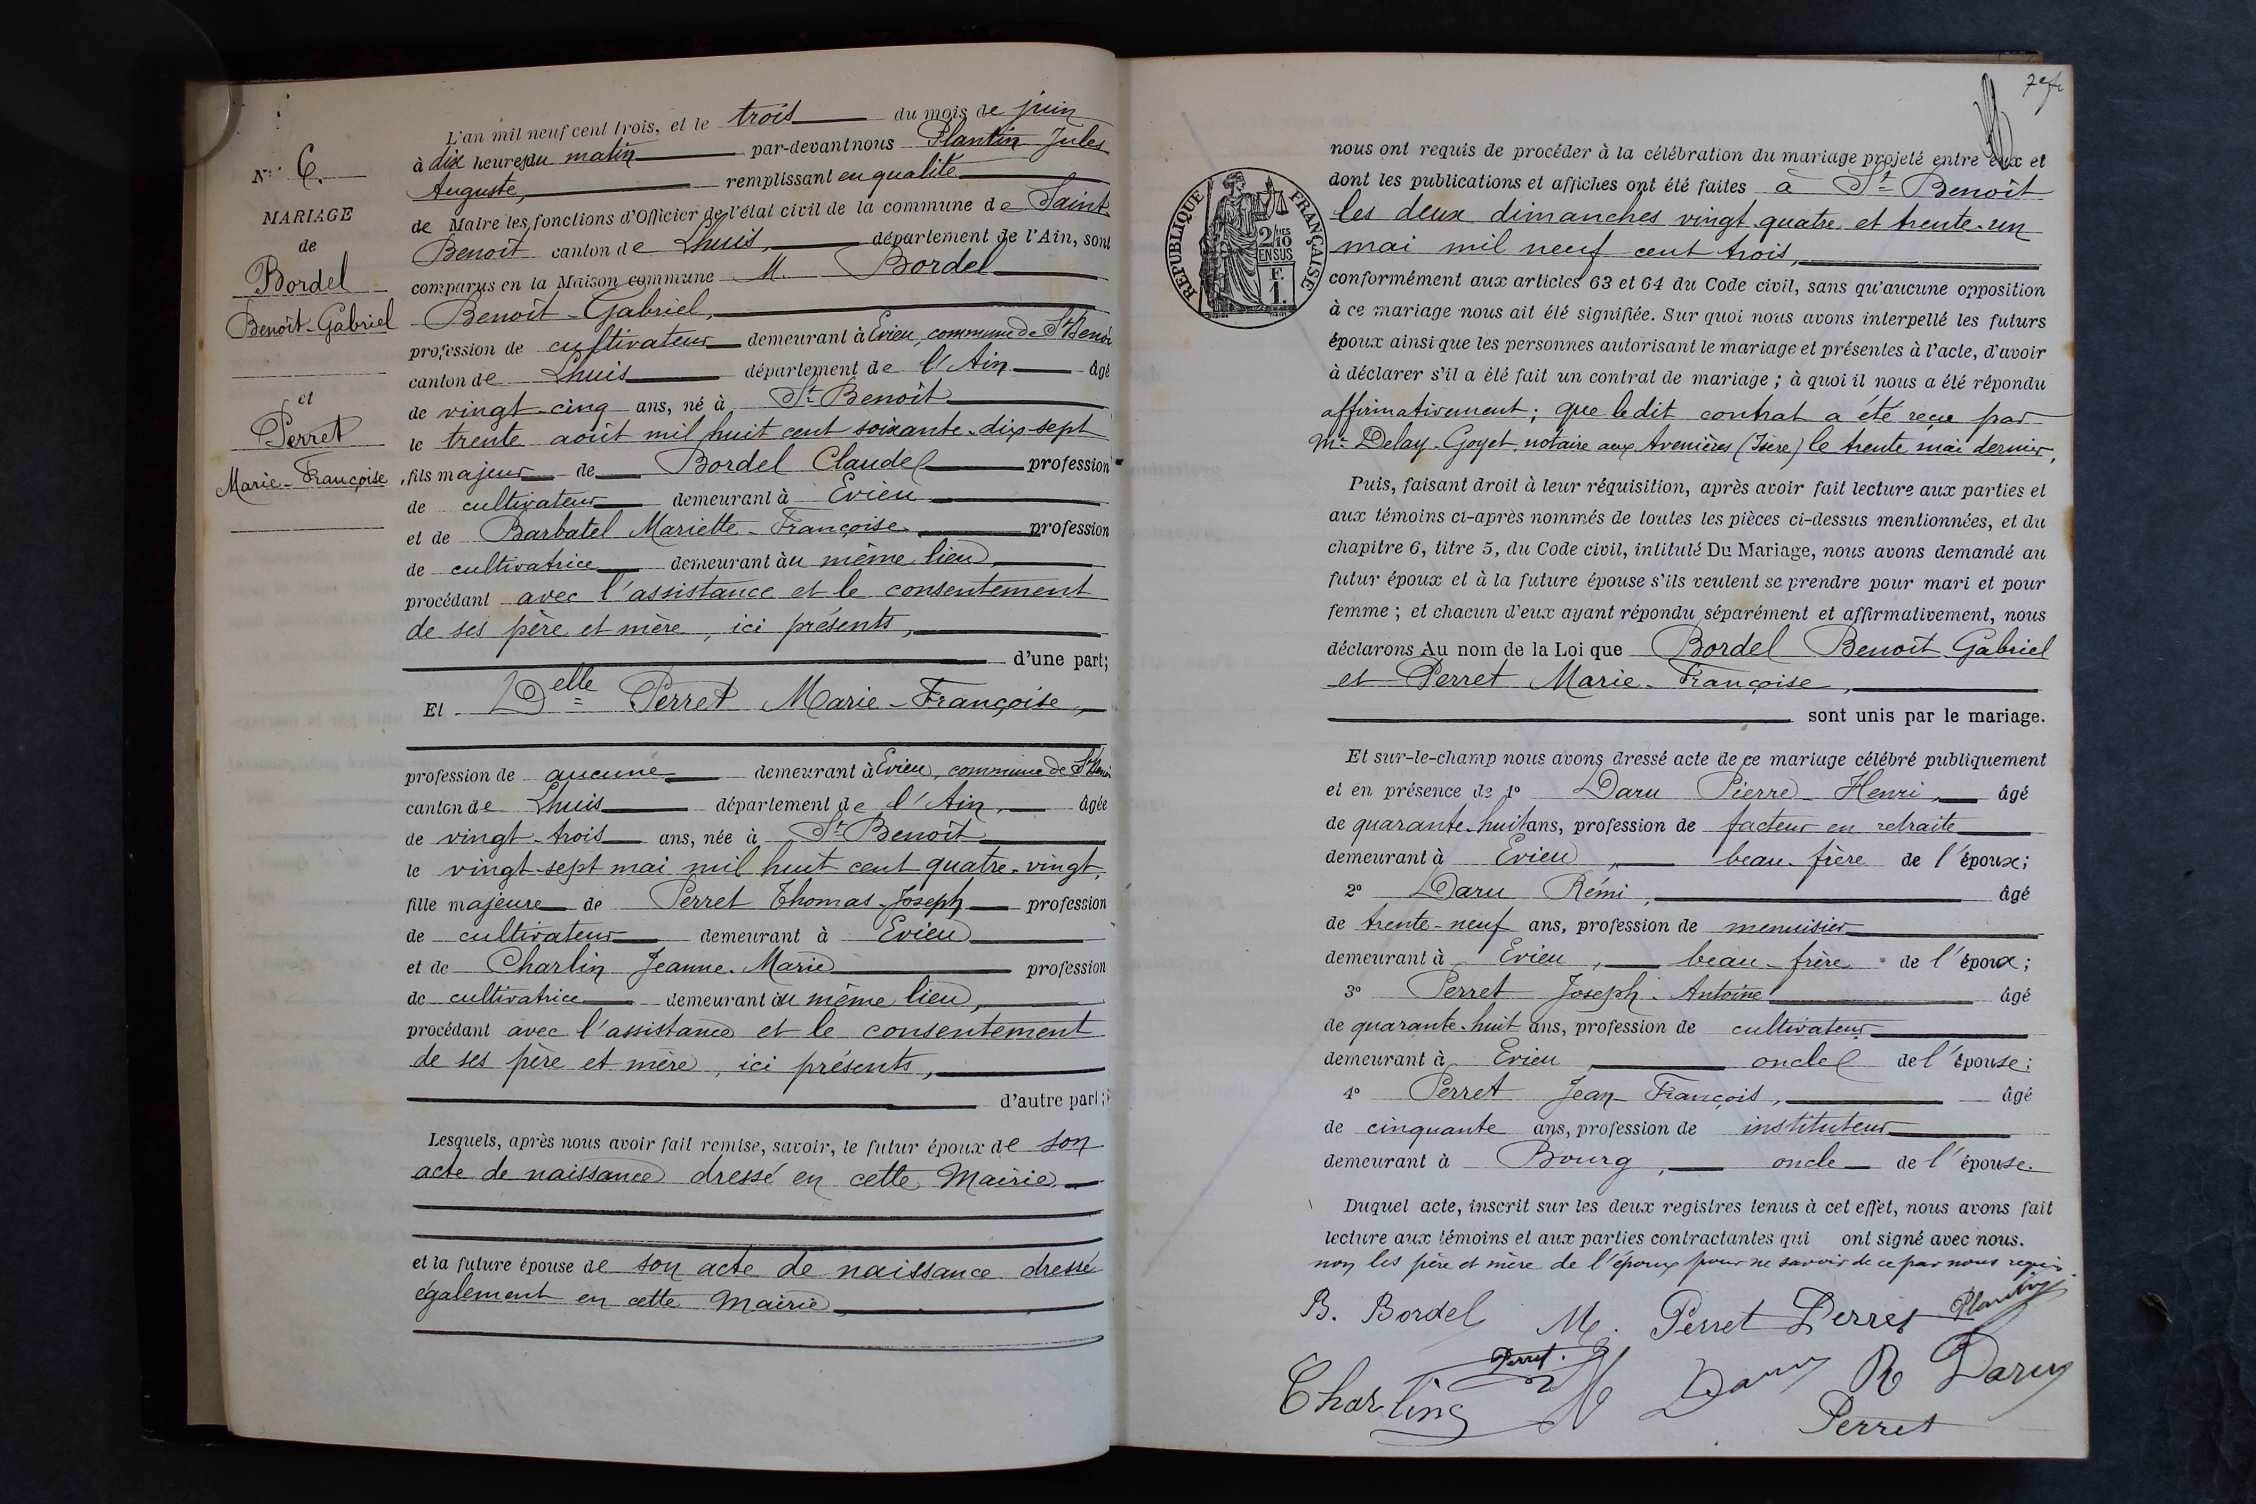 N° 6.
MARIAGE
de
Bordel
Benoît-Gabriel
et
Perret
Marie-Françoise
L'an mil neuf cent trois, et le trois du mois de juin
à dix heures du matin par-devant nous Plantin Jules
Auguste, remplissant en qualité
de Maire les fonctions d'Officier de l'état civil de la commune de Saint
Benoît canton de Lhuis, département de l'Ain, sont
comparus en la Maison commune M. Bordel
Benoît-Gabriel,
profession de cultivateur demeurant à Evieu, commune de St Benoît
canton de Lhuis département de l'Ain âgé
de vingt-cinq ans, né à St Benoît
le trente août mil huit cent soixante-dix-sept
fils majeur de Bordel Claude profession
de cultivateur demeurant à Evieu
et de Barbatel Mariette-Françoise profession
de cultivatrice demeurant au même lieu,
procédant avec l'assistance et le consentement
de ses père et mère, ici présents,
d'une part;
Et Delle Perret Marie-Françoise,
profession de aucune demeurant à Evieu, commune de St Benoît
canton de Lhuis département de l'Ain, âgée
de vingt-trois ans, née à St Benoît
le vingt-sept mai mil huit cent quatre-vingt,
fille majeure de Perret Thomas-Joseph profession
de cultivateur demeurant à Evieu
et de Charlin Jeanne-Marie profession
de cultivatrice demeurant au même lieu,
procédant avec l'assistance et le consentement
de ses père et mère, ici présents,
d'autre part;
Lesquels, après nous avoir fait remise, savoir, le futur époux de son
acte de naissance dressé en cette Mairie
et la future épouse de son acte de naissance dressé
également en cette Mairie,
nous ont requis de procéder à la célébration du mariage projeté entre eux et
dont les publications et affiches ont été faites à St Benoît
les deux dimanches vingt-quatre et trente-un
mai mil neuf cent trois,
RÉPUBLIQUE FRANÇAISE
2/10 MES EN SUS
F. 1.
conformément aux articles 63 et 64 du Code civil, sans qu'aucune opposition
à ce mariage nous ait été signifiée. Sur quoi nous avons interpellé les futurs
époux ainsi que les personnes autorisant le mariage et présentes à l'acte, d'avoir
à déclarer s'il a été fait un contrat de mariage ; à quoi il nous a été répondu
affirmativement; que ledit contrat a été reçu par
Me Delay-Goyet, notaire aux Avenières (Isère) le trente mai dernier,
Puis, faisant droit à leur réquisition, après avoir fait lecture aux parties et
aux témoins ci-après nommés de toutes les pièces ci-dessus mentionnées, et du
chapitre 6, titre 5, du Code civil, intitulé Du Mariage, nous avons demandé au
futur époux et à la future épouse s'ils veulent se prendre pour mari et pour
femme ; et chacun d'eux ayant répondu séparément et affirmativement, nous
déclarons Au nom de la Loi que Bordel Benoît Gabriel
et Perret Marie-Françoise,
sont unis par le mariage.
Et sur-le-champ nous avons dressé acte de ce mariage célébré publiquement
et en présence de 1° Daru Pierre-Henri, âgé
de quarante-huit ans, profession de facteur en retraite
demeurant à Evieu, beau-frère de l'époux;
2° Daru Rémi, âgé
de trente-neuf ans, profession de menuisier
demeurant à Evieu, beau-frère de l'époux;
3° Perret Joseph-Antoine âgé
de quarante-huit ans, profession de cultivateur
demeurant à Evieu, oncle de l'épouse;
4° Perret Jean François, âgé
de cinquante ans, profession de instituteur
demeurant à Bourg, oncle de l'épouse.
Duquel acte, inscrit sur les deux registres tenus à cet effet, nous avons fait
lecture aux témoins et aux parties contractantes qui ont signé avec nous.
non les père et mère de l'époux pour ne savoir de ce par nous requis
B. Bordel M. Perret Perret Plantin
Charlin Perret Daru R Daru
Perret